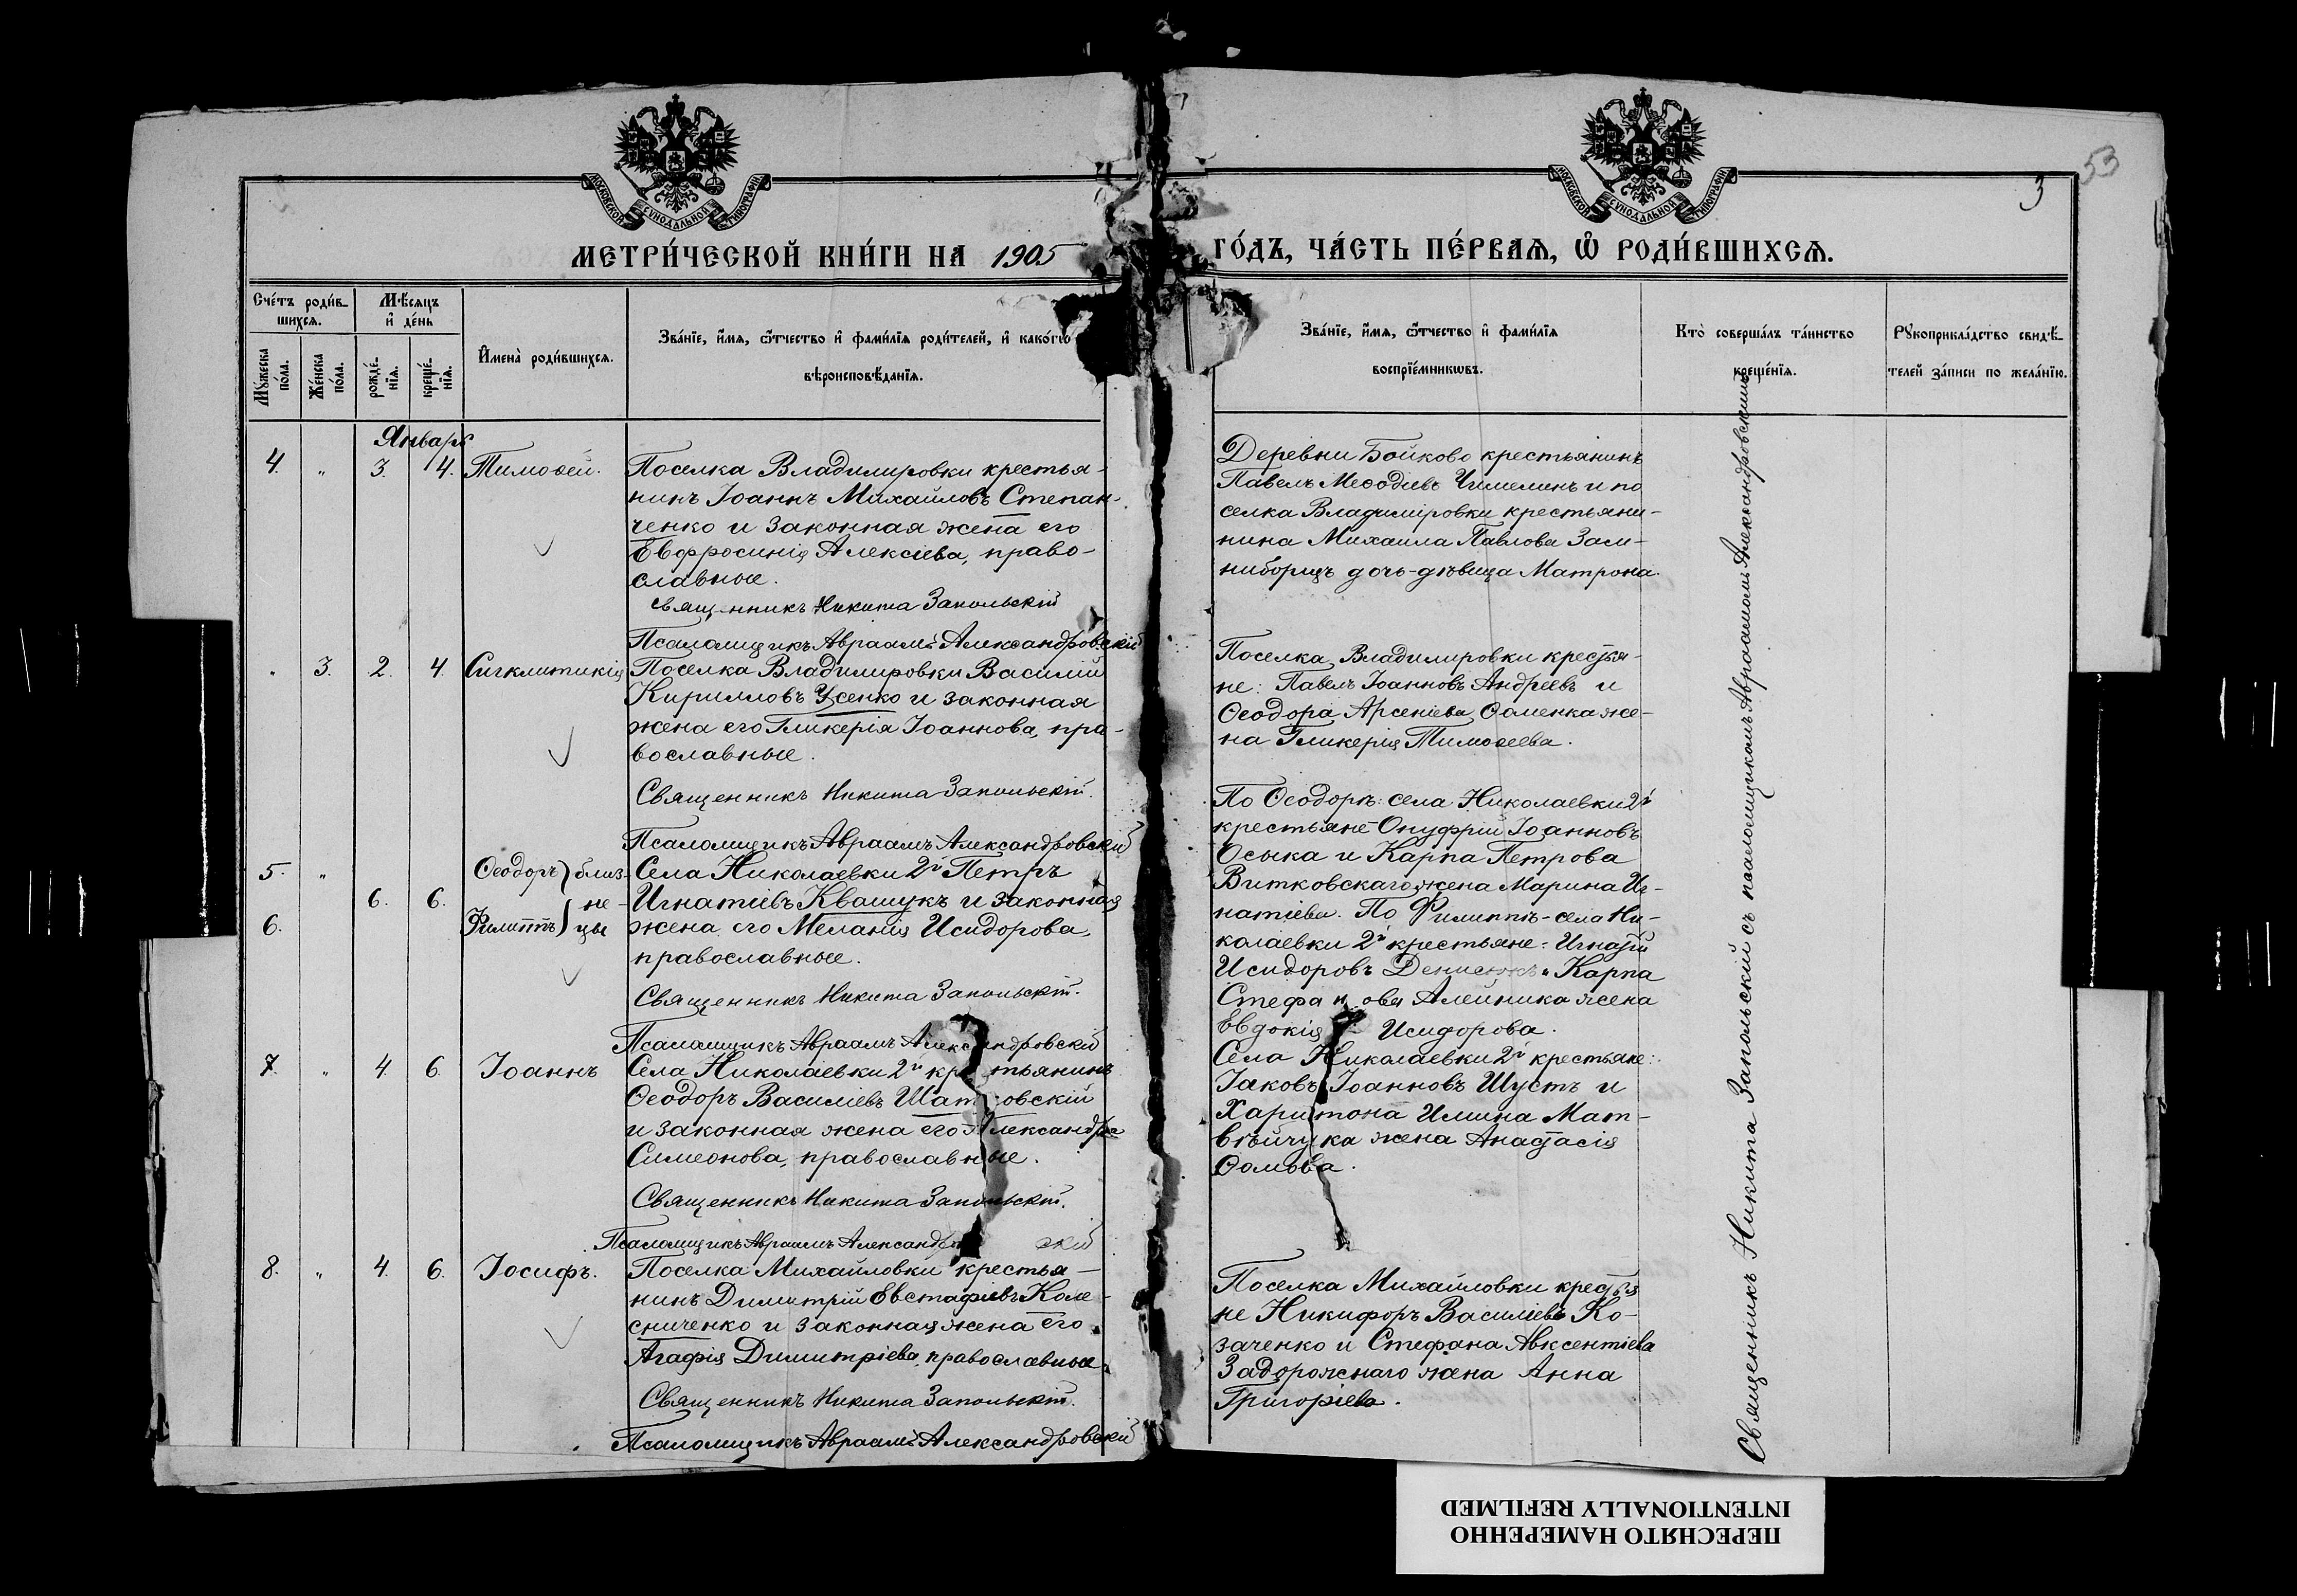 53
3
МОСКОВСКОЙ СУНОДАЛЬНОЙ ТИПОГРАФІИ
МОСКОВСКОЙ СУНОДАЛЬНОЙ ТИПОГРАФІИ
МЕТРИ́ЧЕСКОЙ КНИ́ГИ НА 1905
ГО́ДЪ, ЧА́СТЬ ПЕ́РВАЯ, Ѡ РОДИ́ВШИХСЯ.
Сче́тъ роди́в-
шихся.
Мꙋжеска по́ла.
Же́нска по́ла.
Мѣ́сяцъ
и҆ де́нь
рожде́-
нїя.
креще́-
нїя.
И҆мена̀ роди́вшихся.
Зва́нїе, и҆́мя, ѻ҆́тчество и҆ фами́лїя роди́телей, и҆ како́гѡ
вѣроисповѣ́данїя.
Зва́нїе, и҆́мя, ѻ҆́тчество и҆ фами́лїя
воспрїе́мникѡвъ.
Кто̀ соверша́лъ та́инство
креще́нїя.
Рꙋкоприкла́дство свидѣ́-
телей за́писи по жела́нїю.
Январь
4. " 3. 4. Тимоѳей.
Поселка Владимировки крестья-
нинъ Іоаннъ Михайловъ Степан-
ченко и законная жена его
Евфросинія Алексіева, право-
славные.
Священникъ Никита Запольскій
Псаломщикъ Авраамъ Александровскій
Деревни Бойково крестьянинъ
Павелъ Меѳодіевъ и по
селка Владиміровки крестьяни-
нина Михаила Павлова Зам-
ниборщъ дочь-дѣвица Матрона.
" 3. 2. 4. Сигклитикія
Поселка Владимировки Василій
Кирилловъ Усенко и законная
жена его Гликерія Іоаннова, пра-
вославные.
Священникъ Никита Запольскій.
Псаломщикъ Авраамъ Александровскій
Поселка Владимировки крестья-
не: Павелъ Іоанновъ Андреевъ и
Ѳеодора Арсеніева Ѳоменка же-
на Гликерія Тимоѳеева.
5. " Ѳеодоръ } близ-
6. 6. не-
6. Филиппъ } цы
Села Николаевки 2й Петръ
Игнатіевъ Квашукъ и законная
жена его Меланія Исидорова,
православные.
Священникъ Никита Запольскій.
Псаломщикъ Авраамъ Александровскій
По Ѳеодорѣ: села Николаевки 2й
крестьяне Онуфрій Іоанновъ
Осыка и Карпа Петрова
Витковскаго жена Марина Иг-
натіева. По Филиппѣ - села Ни-
колаевки 2й крестьяне: Игнатій
Исидоровъ Денисюкъ и Карпа
Стефанова Алейника жена
Евдокія Исидорова.
7. " 4. 6. Іоаннъ
Села Николаевки 2й кр тьянинъ
Ѳеодоръ Василіевъ Шат овскій
и законная жена его Александра
Симеонова, православные.
Священникъ Никита Запольскій.
Псаломщикъ Авраамъ Александр скій
Села Николаевки 2й крестьяне:
Іаковъ Іоанновъ Шустъ и
Харитона Илиина Мат-
вѣйчука жена Анастасія
Ѳомова.
8. " 4. 6. Іосифъ.
Поселка Михайловки крестья-
нинъ Димитрій Евстафіевъ Коле-
сниченко и законная жена его
Агафія Димитріева, православные.
Священникъ Никита Запольскій.
Псаломщикъ Авраамъ Александровскій
Поселка Михайловки крестья
не Никифоръ Василіевъ Ко-
заченко и Стефана Авксентіева
Задорожнаго жена Анна
Григоріева.
Священникъ Никита Запольскій съ псаломщикомъ Авраамомъ Александровскимъ
ПЕРЕСНЯТО НАМЕРЕННО
INTENTIONALLY REFILMED